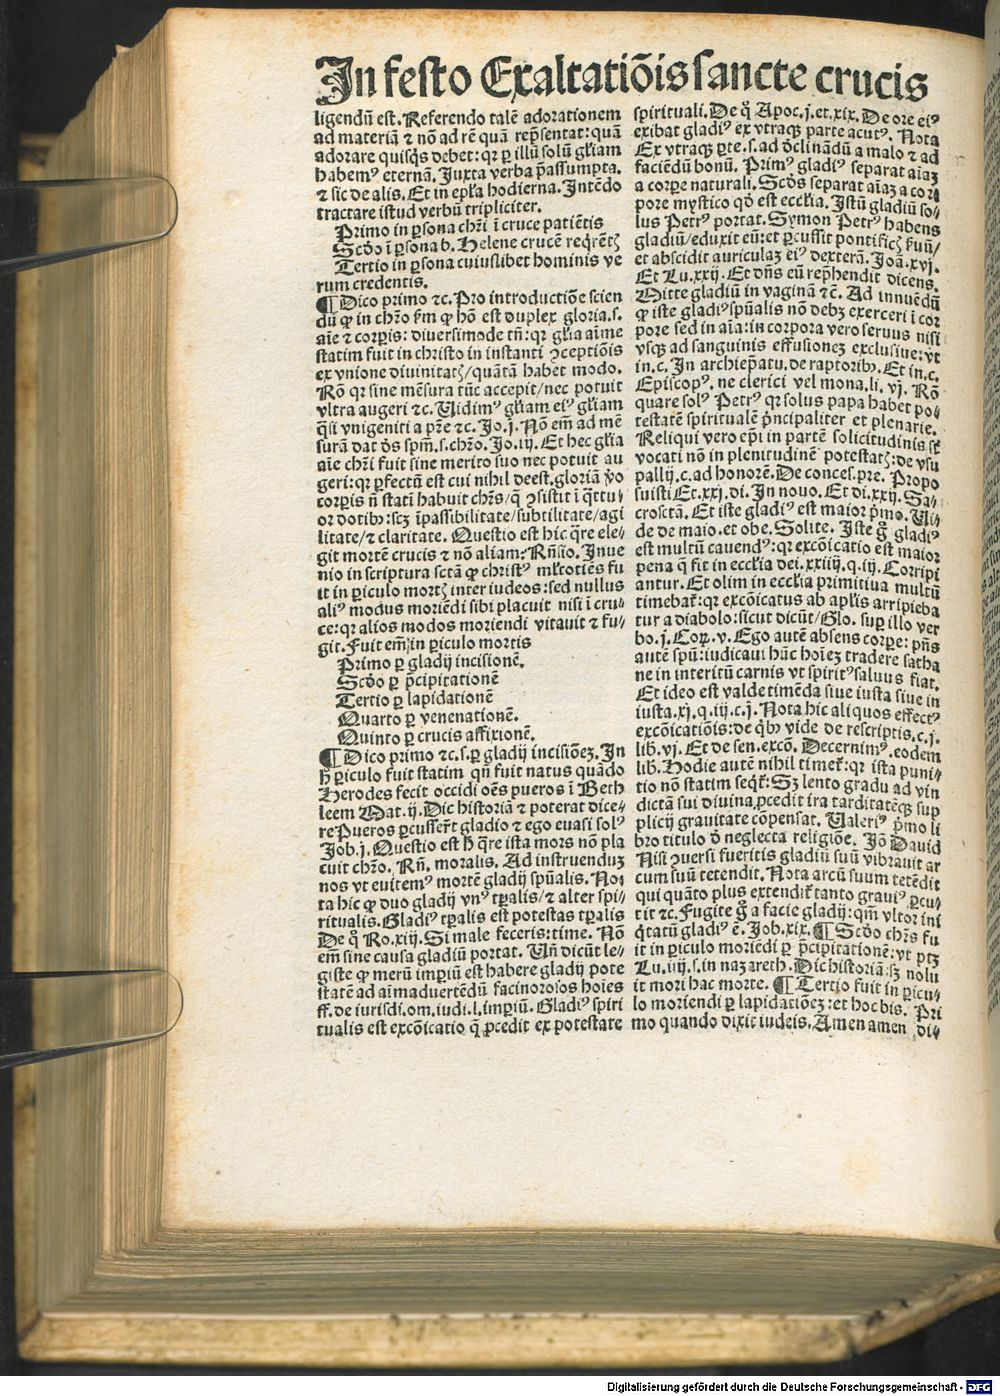 In festo Exaltatiõis sancte crucis
ligendũ est. Referendo talẽ adorationem
ad materiã ⁊ nõ ad rẽ quã rep̃sentat: quã
adorare quisq̃s debet: qꝛ ꝑ illũ solũ gl̃iam
habemꝰ eternã. Juxta verba p̃assumpta.
⁊ sic de alis. Et in ep̃la hodierna. Intẽdo
tractare istud verbũ tripliciter.
Primo in ꝑsona chr̃i ĩ cruce patiẽtis
Scḋo ĩ ꝑsona b. Helene crucẽ req̃rẽtꝭ
Tertio in ꝑsona cuiuslibet hominis ve
rum credentis.
¶ Dico primo ⁊c. Pro introductiõe scien
dũ ꝙ in chr̃o ẽm ꝙ hõ est duplex gloria. s.
aĩe ⁊ corꝑis: diuersimode tñ: qꝛ gl̃ia aĩme
statim fuit in christo in instanti ꝯceptiõis
ex vnione diuinitatꝭ/quãtã habet modo.
Rõ qꝛ sine mẽsura tũc accepit/nec potuit
vltra augeri ⁊c. Uidimꝰ gl̃iam eiꝰ gl̃iam
q̃si vnigeniti a pr̃e ⁊c. Jo. j. Nõ em̃ ad mẽ
surã dat ds̃ spm̃. s. chr̃o. Jo. iij. Et hec gl̃ia
aĩe chr̃i fuit sine merito suo nec potuit au
geri: qꝛ ꝑfectũ est cui nihil deest. gloriã ṽo
corꝑis ñ statĩ habuit chr̃s/q̃ ꝯsistit ĩ q̃ttu⸗
or dotibꝰ: scꝫ ĩpassibilitate/subtilitate/agi
litate/⁊ claritate. Questio est hic q̃re ele⸗
git mortẽ crucis ⁊ nõ aliam: Rñsio. Inue
nio in scriptura sctã ꝙ christꝰ ml̃totiẽs fu
it in ꝑiculo mortꝭ inter iudeos: sed nullus
aliꝰ modus moriẽdi sibi placuit nisi ĩ cru⸗
ce: qꝛ alios modos moriendi vitauit ⁊ fu⸗
git. Fuit em̃ in ꝑiculo mortis
Primo ꝑ gladij incisionẽ.
Scḋo ꝑ p̃cipitationẽ
Tertio ꝑ lapidationẽ
Quarto ꝑ venenationẽ.
Quinto ꝑ crucis affixionẽ.
¶ Dico primo ⁊c. s. ꝑ gladij incisiõeꝫ. In
h̃ ꝑiculo fuit statim qñ fuit natus quãdo
Herodes fecit occidi oẽs pueros ĩ Beth
leem Mat. ij. Dic historiã ⁊ poterat dice⸗
re Pueros ꝑcusser̃t gladio ⁊ ego euasi solꝰ
Job. j. Questio est h̃ q̃re ista mors nõ pla
cuit chr̃o. Rñ. moralis. Ad instruenduꝫ
nos vt euitemꝰ mortẽ gladij spũalis. No⸗
ta hic ꝙ duo gladij vnꝰ tꝑalis/⁊ alter spi⸗
ritualis. Gladiꝰ tꝑalis est potestas tꝑalis
De q̃ Ro. xiij. Si male feceris: time. Nõ
em̃ sine causa gladiũ portat. Uñ dicũt le⸗
giste ꝙ merũ impiũ est habere gladij pote
statẽ ad aĩmaduertẽdũ facinorosos hoĩes
ff. de iurisdi. om. iudi. l. imꝑiũ. Gladiꝰ spiri
tualis est excõicatio q̃ ꝓcedit ex potestate
spirituali. De q̃ Apoc. j. et. xix. De ore eiꝰ
exibat gladiꝰ ex vtraqꝫ parte acutꝰ. Nota
Ex vtraqꝫ ꝑte. s. ad d̃clinãdũ a malo ⁊ ad
faciẽdũ bonũ. Primꝰ gladiꝰ separat aĩaꝫ
a corꝑe naturali. Scḋs separat aĩaꝫ a cor⸗
pore mystico qḋ est eccl̃ia. Istũ gladiũ so⸗
lus Petrꝰ portat. Symon Petrꝰ habens
gladiũ/eduxit eũ: et ꝑcussit pontificꝭ ẽuũ/
et abscidit auriculaꝫ eiꝰ dexterã. Joã. xvj.
Et Lu. xxij. Et dñs eũ rep̃hendit dicens.
Mitte gladiũ in vaginã ⁊c̃. Ad innuẽdũ
ꝙ iste gladiꝰ spũalis nõ debꝫ exerceri ĩ cor
pore sed in aĩa: in corpora vero seruus nisi
vsqꝫ ad sanguinis effusioneꝫ exclusiue: vt
in. c. In archiep̃atu. de raptoribꝰ. Et in. c.
Episcopꝰ. ne clerici vel mona. li. vj. Rõ
quare solꝰ Petrꝰ qꝛ solus papa habet po⸗
testatẽ spiritualẽ p̃ncipaliter et plenarie.
Reliqui vero ep̃i in partẽ solicitudinis st̃
vocati nõ in plenitudinẽ potestatꝭ: de vsu
pallij. c. ad honorẽ. De conces. pre. Propo
suisti Et. xxj. di. In nouo. Et di. xxij. Sa⸗
crosctã. Et iste gladiꝰ est maior p̃mo. Ui⸗
de de maio. et obe. Solite. Iste g̃ gladiꝰ
est multũ cauendꝰ: qꝛ excõicatio est maior
pena q̃ fit in eccl̃ia dei. xxiiij. q. iij. Corripi
antur. Et olim in eccl̃ia primitiua multũ
timebat᷑: qꝛ excõicatus ab apl̃is arripieba
tur a diabolo: sicut dicũt/Glo. suꝑ illo ver
bo. j. Coꝝ. v. Ego autẽ absens corꝑe: p̃ñs
autẽ spũ: iudicaui hũc hoĩeꝫ tradere satha
ne in interitũ carnis vt spiritꝰ saluus fiat.
Et ideo est valde timẽda siue iusta siue in
iusta. xj. q. iij. c. j. Nota hic aliquos effectꝰ
excõicatiõis: de q̃bꝰ vide de rescriptis. c. j.
lib. vj. Et de sen. excõ. Decernimꝰ. eodem
lib. Hodie autẽ nihil timet᷑: qꝛ ista puni⸗
tio nõ statim seqt᷑: Sꝫ lento gradu ad vin
dictã sui diuina ꝓcedit ira tarditatẽqꝫ sup
plicij grauitate cõpensat. Ualeriꝰ p̃mo li
bro titulo d̃ neglecta religiõe. Jõ Dauid
Nisi ꝯuersi fueritis gladiũ suũ vibrauit ar
cum suũ tetendit. Nota arcũ suum tetẽdit
qui quãto plus extendit᷑ tanto grauiꝰ ꝑcu⸗
tit ⁊c. Fugite g̃ a facie gladij: qm̃ vltor ini
q̃tatũ gladiꝰ ẽ. Job. xix. ¶ Scḋo chr̃s fu
it in ꝑiculo moriẽdi ꝑ p̃cipitationẽ: vt ptꝫ
Lu. iiij. s. in nazareth. Dic historiã: sꝫ nolu
it mori hac morte. ¶ Tertio fuit in ꝑicu⸗
lo moriendi ꝑ lapidatiõeꝫ: et hoc bis. Pri
mo quando dixit iudeis. Amen amen di⸗
Digitalisierung gefördert durch die Deutsche Forschungsgemeinschaft - DFG